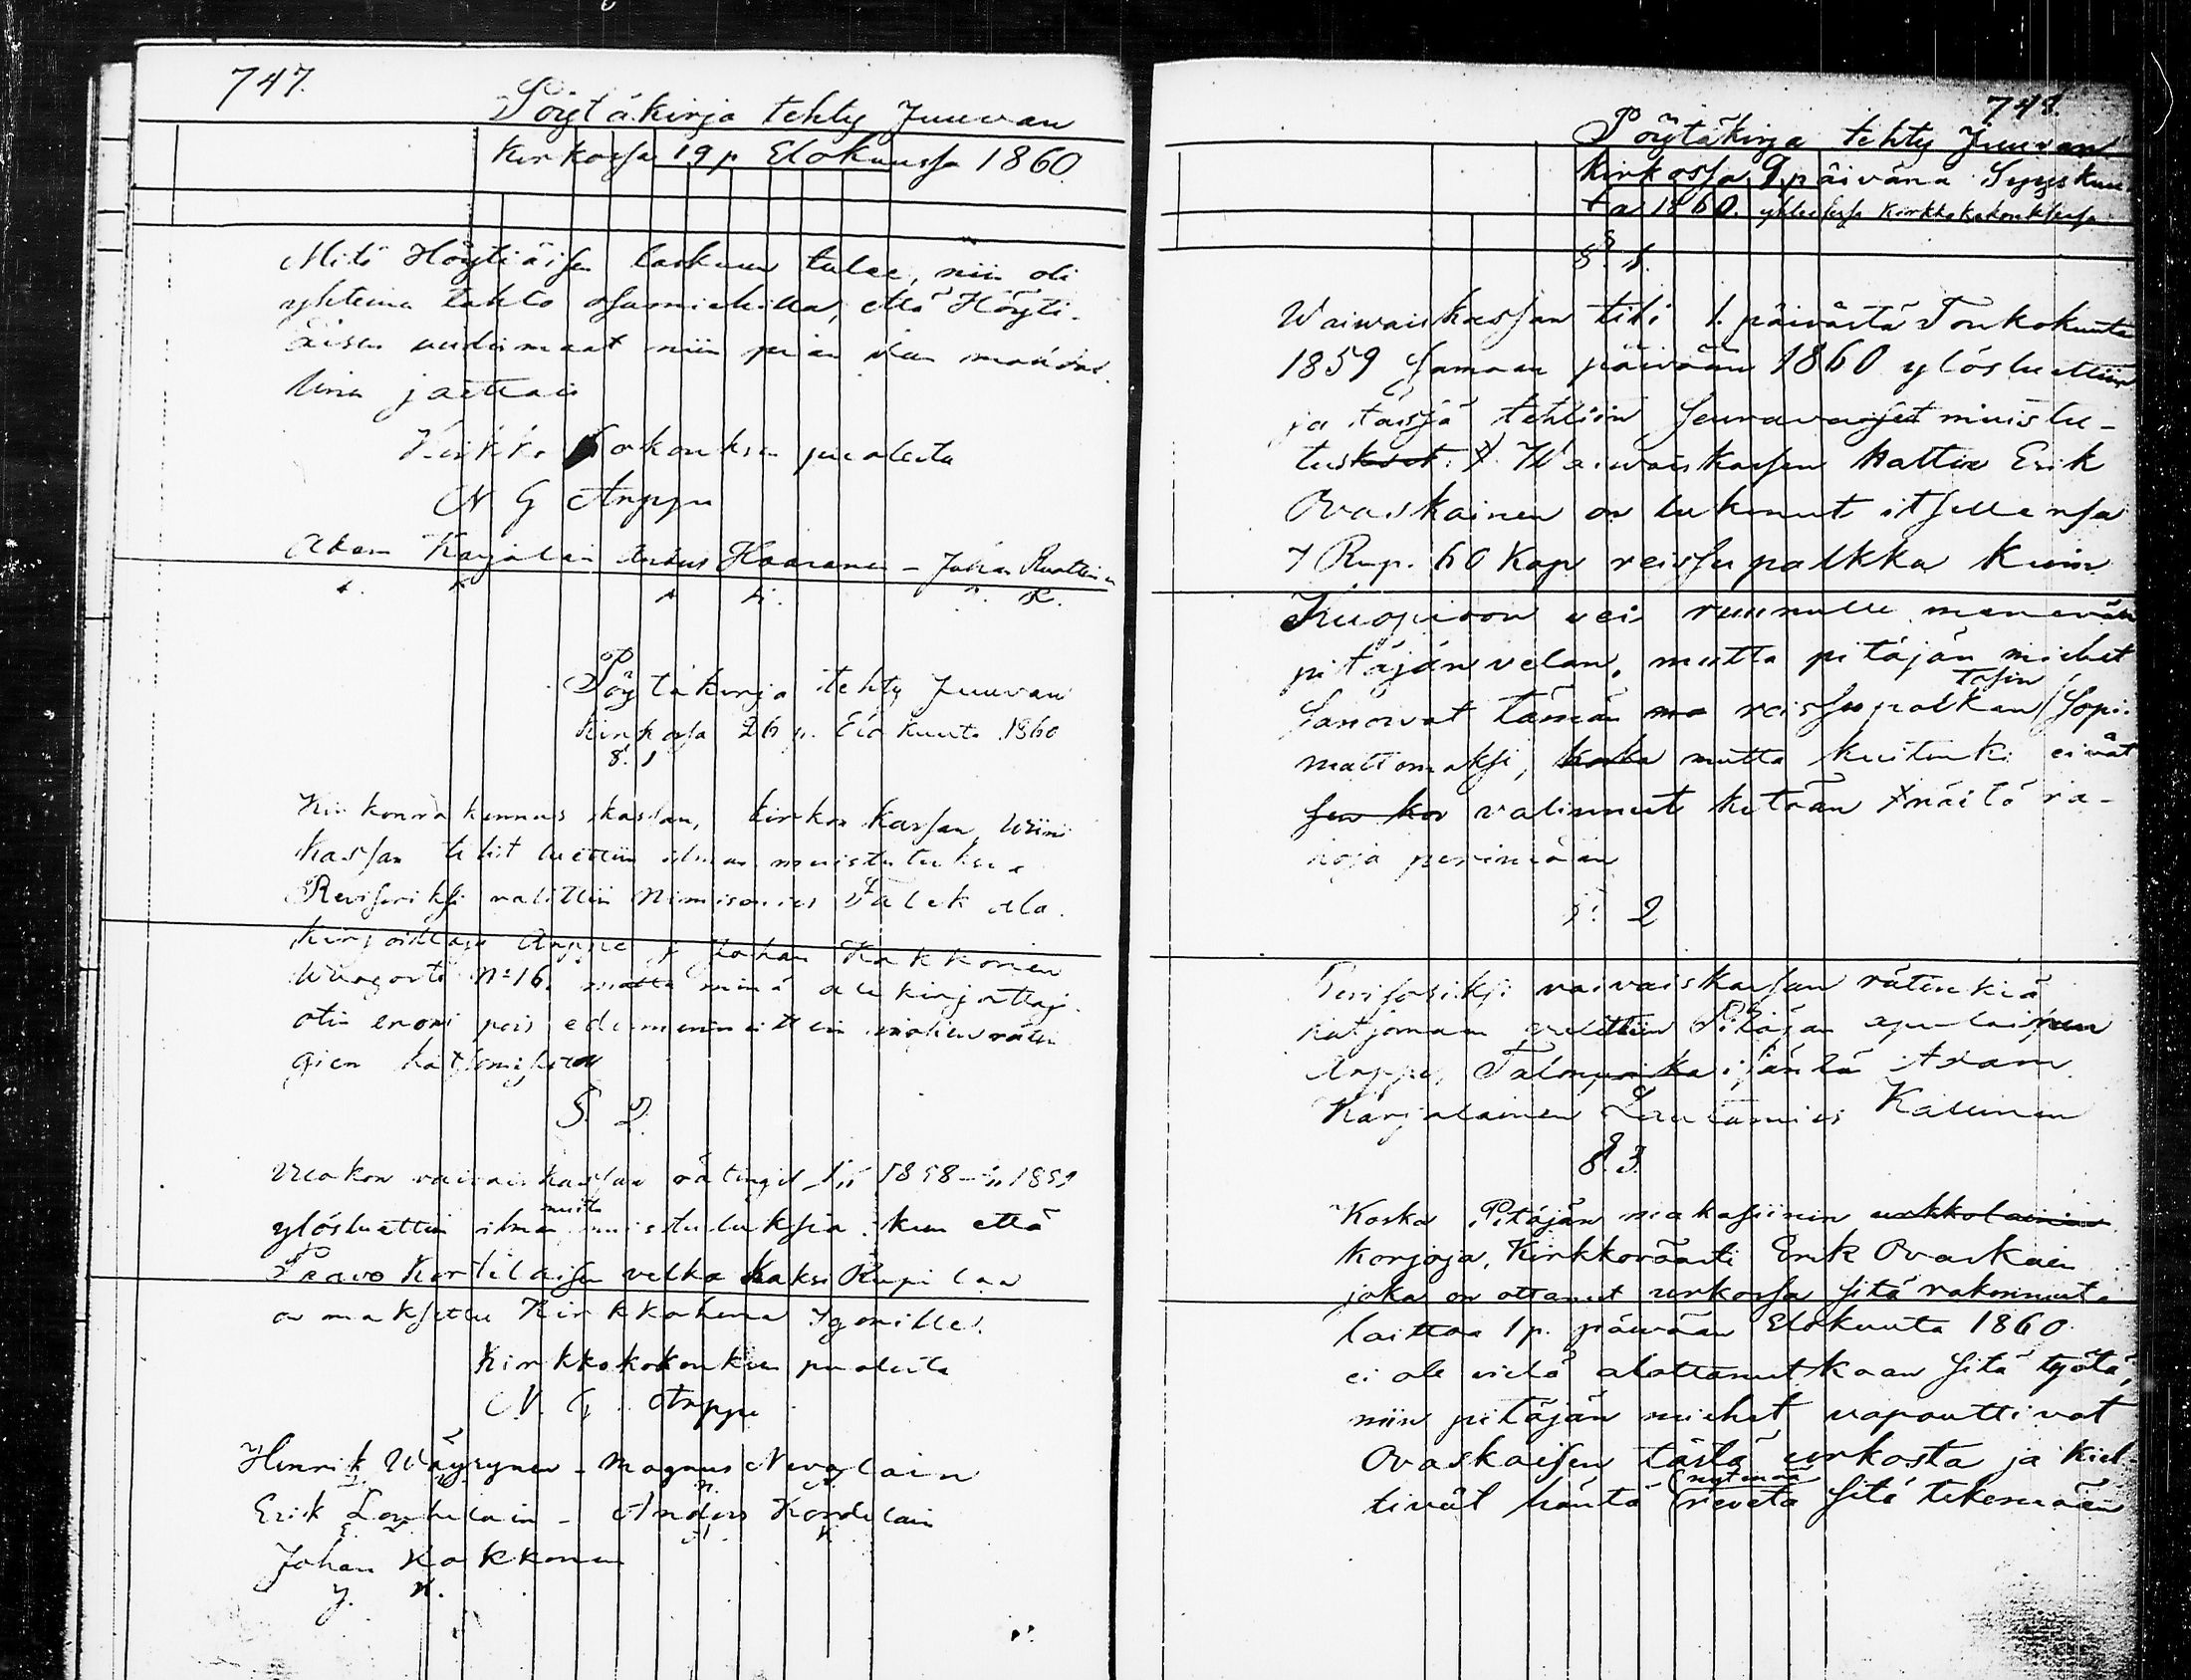 747.
Pöytäkirja tehty Juuvan
Kirkossa 19 p Elokuussa 1860
Mitä Höytiäisen laskuun tulee, niin oli
yhteina tahto osamiehilla, että Höyti-
äisen uudismaat niin pian kun mahdol-
lina jaettais
Kirkko Kokouksen puolesta
N G Arppe
Adam Karjalain Anders Haaranen - Johan Ruottinen
A. K. A H. J. R.
Pöytäkirja tehty Juuvan
Kirkossa 26 p. Elokuuta 1860
§. 1
Kirkonrakennus kassan, kirkon kassan, Wiini
kassan tilit luettiin ilman muistutuksia
Revisoriksi valittiin Nimismies Falck ala
kirjoittaja Arppe ja Johan Kakkonen
N:o 16. mutta minä allekirjottaja
otin eroni pois edesmennitten
gien katsomisesta
§. 2.
vaivaiskassan rätingit 1858 - 1859
ylösluettiin ilman muita muistutuksia kun että
Paavo Kortelaisen velka kaksi Rupilaa
on maksettu Kirkkoherra Ygonille.
Kirkkokokouksen puolesta
N. G. Arppe
Henrik Wäyrynen - Magnus Nevalain
Erik Louhelain - Anders Kortelain
E. L. A. K.
Johan Kakkonen
J. K.
748.
Pöytäkirja tehty Juuvan
Kirkossa 9 päivänä Syyskuu
ta 1860. yhteisessa Kirkkokokouksessa
§. 1.
Waiwaiskassan tili 1. päivästä Toukokuuta
1859 Samaan päivään 1860 ylösluettiin
ja tässä tehtiin seuravaiset muistu-
tukset: Waiwaiskassan haltia Erik
Ovaskainen on lukenut itsellensa
7 Rup. 60 Kop reissupalkka kuin
Kuopioon vei ruunulle menevän
pitäjän velan, mutta pitäjän miehet
Sanoivat tämän ma reissupalkan tosin Sopi-
mattomaksi, koska mutta kuitenki eivät
sen kor valinneet ketään näitä ra-
hoja perimään
§: 2
Revisoriksi vaivaiskassan rätinkiä
katsomaan valittiin Pitäjän apulainen
Arppe, Talonpoika isäntä Adam
Karjalainen Lautamies Kallinen
§. 3.
Koska Pitäjän makasiinin urkkolainin
Korjoja, Kirkkoväärti Erik Ovaskain
joka on ottanut urkossa sitä rakennusta
laittaa 1 p. päivään Elokuuta 1860
ei ole vielä alottanutkaan sitä työtä,
niin pitäjän miehet vapauttivat
Ovaskaisen tästä urkosta ja kiel-
tivät häntä nyt enää reveta sitä tekemään